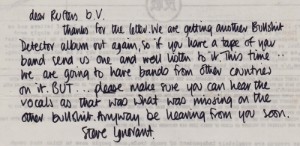 dear Rutters b.V.
Thanks for the letter. We are getting another Bullshit
Detector album out again, so if you have a tape of your
band send us one and well listen to it. This time..
we are going to have bands from other countries
on it. BUT... please make sure you can hear the
vocals as that was what was missing on the
other bullshit. Anyway be hearing from you soon.
Steve Ignorant.